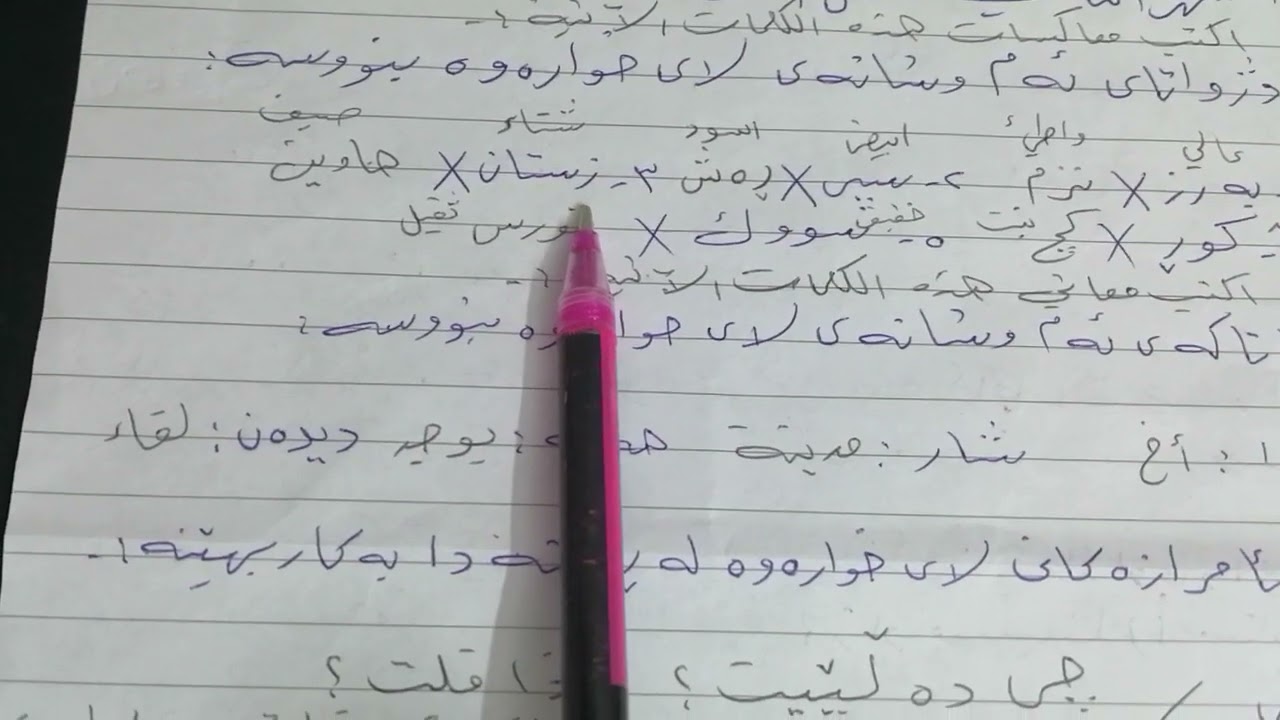 اكتب معاكسات هذه الكلمات الآتية :-
دژواتای ئەم وشانەی لای خوارەوە بنووسە :
عالي واطئ ابيض اسود شتاء صيف
بەرز X نزم ٢- سپی X ڕەش ٣- زستان X هاوين
کوڕ X کچ بنت ٥- سووك خفيف X قورس ثقيل
اكتب معاني هذه الكلمات الآتية :-
تاکەی ئەم وشانەی لای خوارەوە بنووسە :
أخ شار : مدينة هەیە : يوجد ديدەن : لقاء
ئامرازەکانی لای خوارەوە لە ڕستەدا بەکار بهێنە :-
چی دەڵێیت ؟ ماذا قلت ؟